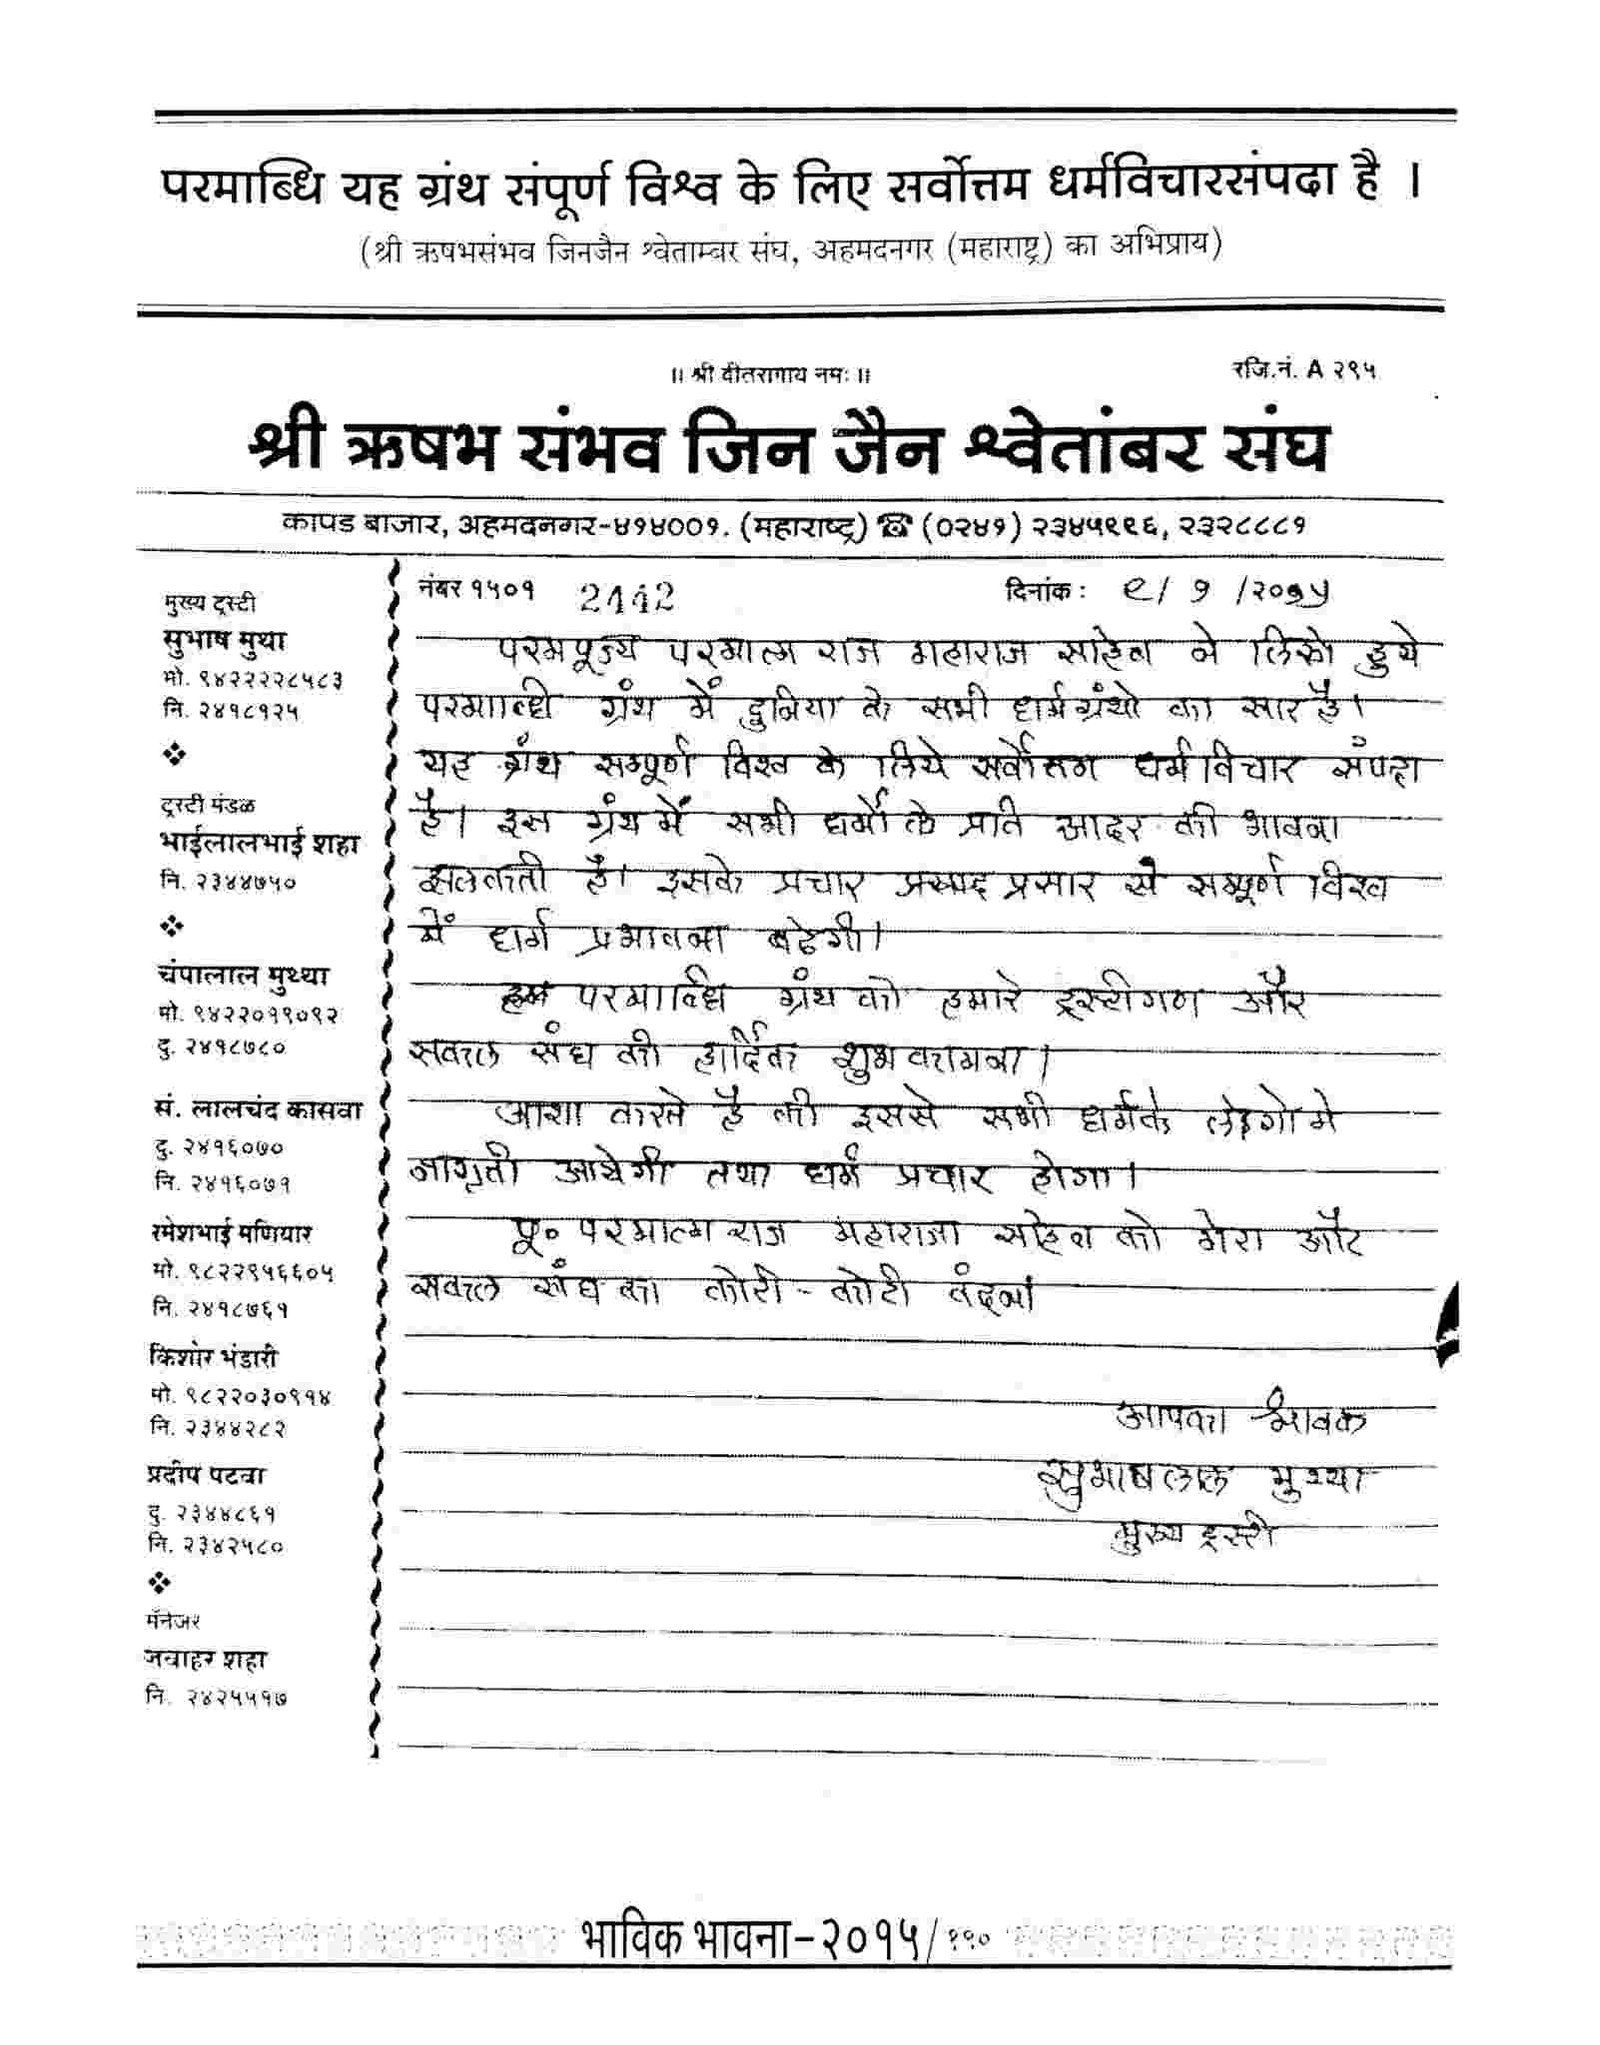 परमाब्धि यह ग्रंथ संपूर्ण विश्व के लिए सर्वोत्तम धर्मविचारसंपदा है ।
(श्री ऋषभसंभव जिनजैन श्वेताम्बर संघ, अहमदनगर (महाराष्ट्र) का अभिप्राय)
॥ श्री वीतरागाय नमः ॥
रजि.नं. A २९५
श्री ऋषभ संभव जिन जैन श्वेतांबर संघ
कापड बाजार, अहमदनगर-४१४००१. (महाराष्ट्र) ☎ (०२४१) २३४५९९६, २३२८८८१
मुख्य ट्रस्टी
सुभाष मुथा
मो. ९४२२२२८५८३
नि. २४१८१२५
ट्रस्टी मंडळ
भाईलालभाई शहा
नि. २३४४७५०
चंपालाल मुथ्था
मो. ९४२२०१९०९२
दु. २४१८७८०
सं. लालचंद कासवा
दु. २४१६०७०
नि. २४१६०७१
रमेशभाई मणियार
मो. ९८२२९५६६०५
नि. २४१८७६१
किशोर भंडारी
मो. ९८२२०३०९१४
नि. २३४४२८२
प्रदीप पटवा
दु. २३४४८६१
नि. २३४२५८०
मॅनेजर
जवाहर शहा
नि. २४२५५१७
नंबर १५०१ 2112 दिनांक : ९/ १ /२०१५
परमपूज्य परमात्म राज महाराज साहेब ने लिखे हुये
परमाब्धी ग्रंथ में दुनिया के सभी धर्मग्रंथो का सार है।
यह ग्रंथ सम्पूर्ण विश्व के लिये सर्वोत्तम धर्मविचार संपदा
है। इस ग्रंथ में सभी धर्मो के प्रति आदर की भावना
झलकती है। इसके प्रचार प्रसार से सम्पूर्ण विश्व
में धर्म प्रभावना बढेगी।
परमाब्धि ग्रंथ को हमारे ट्रस्टीगण और
सकल संघ की हार्दिक शुभकामना।
आशा करते है की इससे सभी धर्मके लोगोमे
जागृती आयेगी तथा धर्म प्रचार होगा।
पू० परमात्म राज महाराजा साहेब को मेरा और
सकल संघ का कोटी-कोटी वंदना
आपका श्रावक
सुभाषलाल मुथ्था
मुख्य ट्रस्टी
भाविक भावना-२०१५/१९०